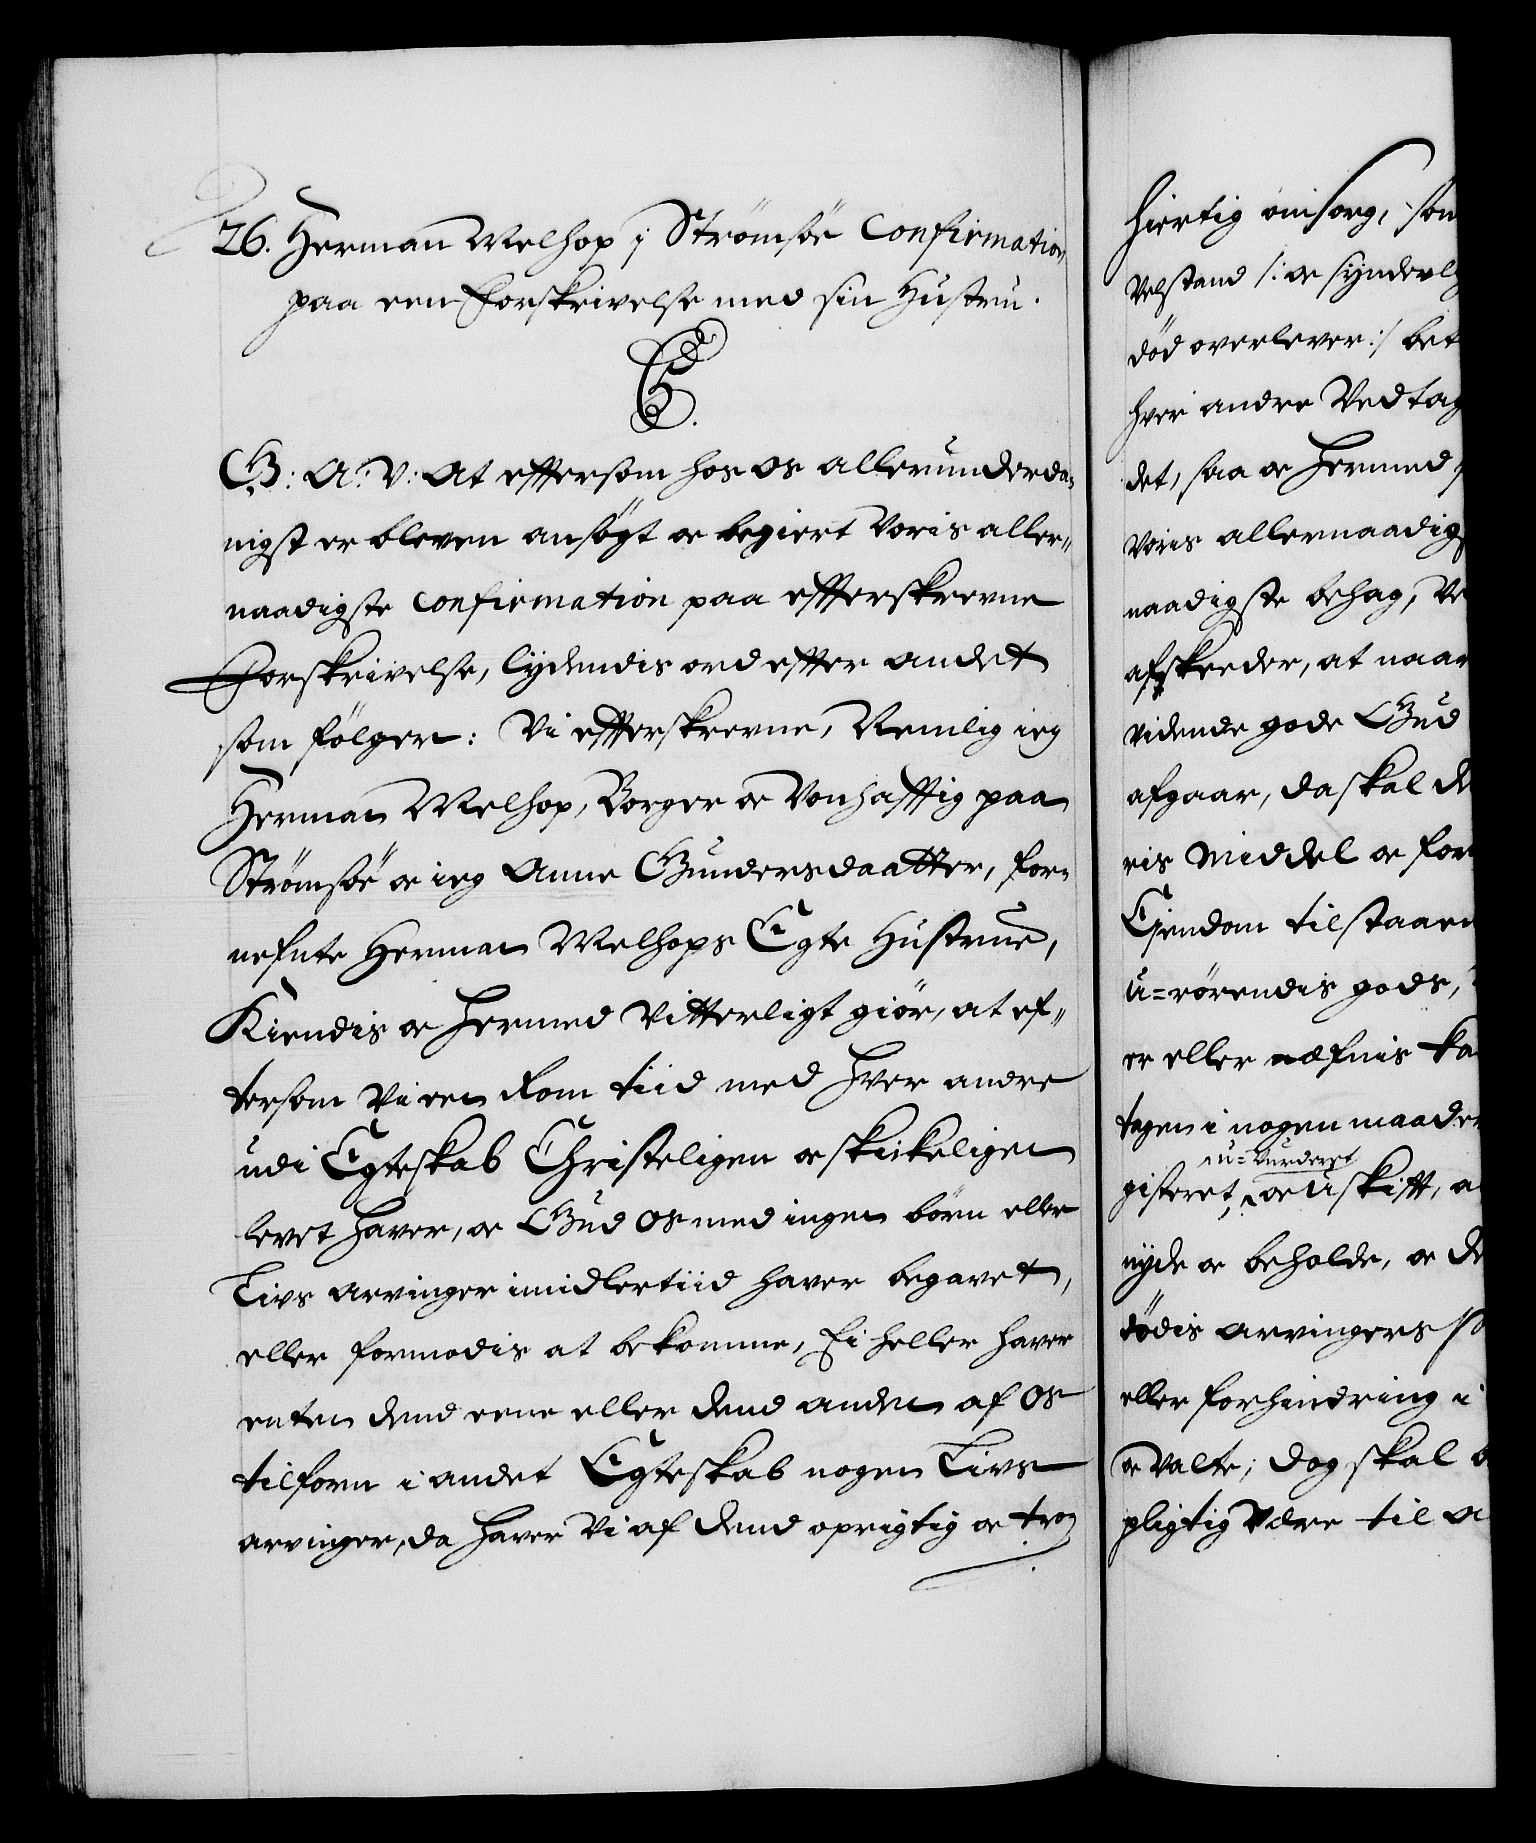 26. Herman Melhop i Strömsöe Confirmation
paa een Forskrivelse med sin Hustru.
G: A: V: At effersom hos os allerunderda-
nigst er bleven ansögt oc begiert Voris aller-
naadigste Confirmation paa effterskrevne
Forskrivelse, lydendis ord effter andet
som fölger: Vi effterskrevne, Nemlig ieg
Herman Melhop, Borger oc Vonhafftig paa
Strömsöe oc ieg Anne Gundersdaatter, for-
nefnte Herman Melhops Egte Hustrue,
Kiendis oc hermed Vitterligt giör, at ef-
tersom Vi een kom tiid med hver andre
udi Egteskab Christeligen oc skickeligen
levet haver, oc Gud os med ingen börn eller
Livs arvinger imidlertiid haver begavet,
eller formodis at bekomme, Ei heller haver
enten dend eene eller dend anden af os
tilforn i andet Egteskab nogen Livs
arvinger, da haver Vi af dend oprigtig oc tro-
hiertig omsorg, som
Velstand /: oc synderlig
död overlever :/ bet
hver andre Vedtag
det, saa oc hermed
Voris allernaadigs
naadigste behag, Ve
afskeeder, at naar
vidende gode Gud
afgaar, da skal de
ris Middel oc for
Ejendom tilstaaen
u=rörendis gods,
er eller næfnis ka
tagen i nogen maader
u=Vurderet
gisteret, oc uskifft, a
nyde oc beholde, oc de
dödis arvingers
eller forhindring i
oc Valte; dog skal
pligtig Være til a